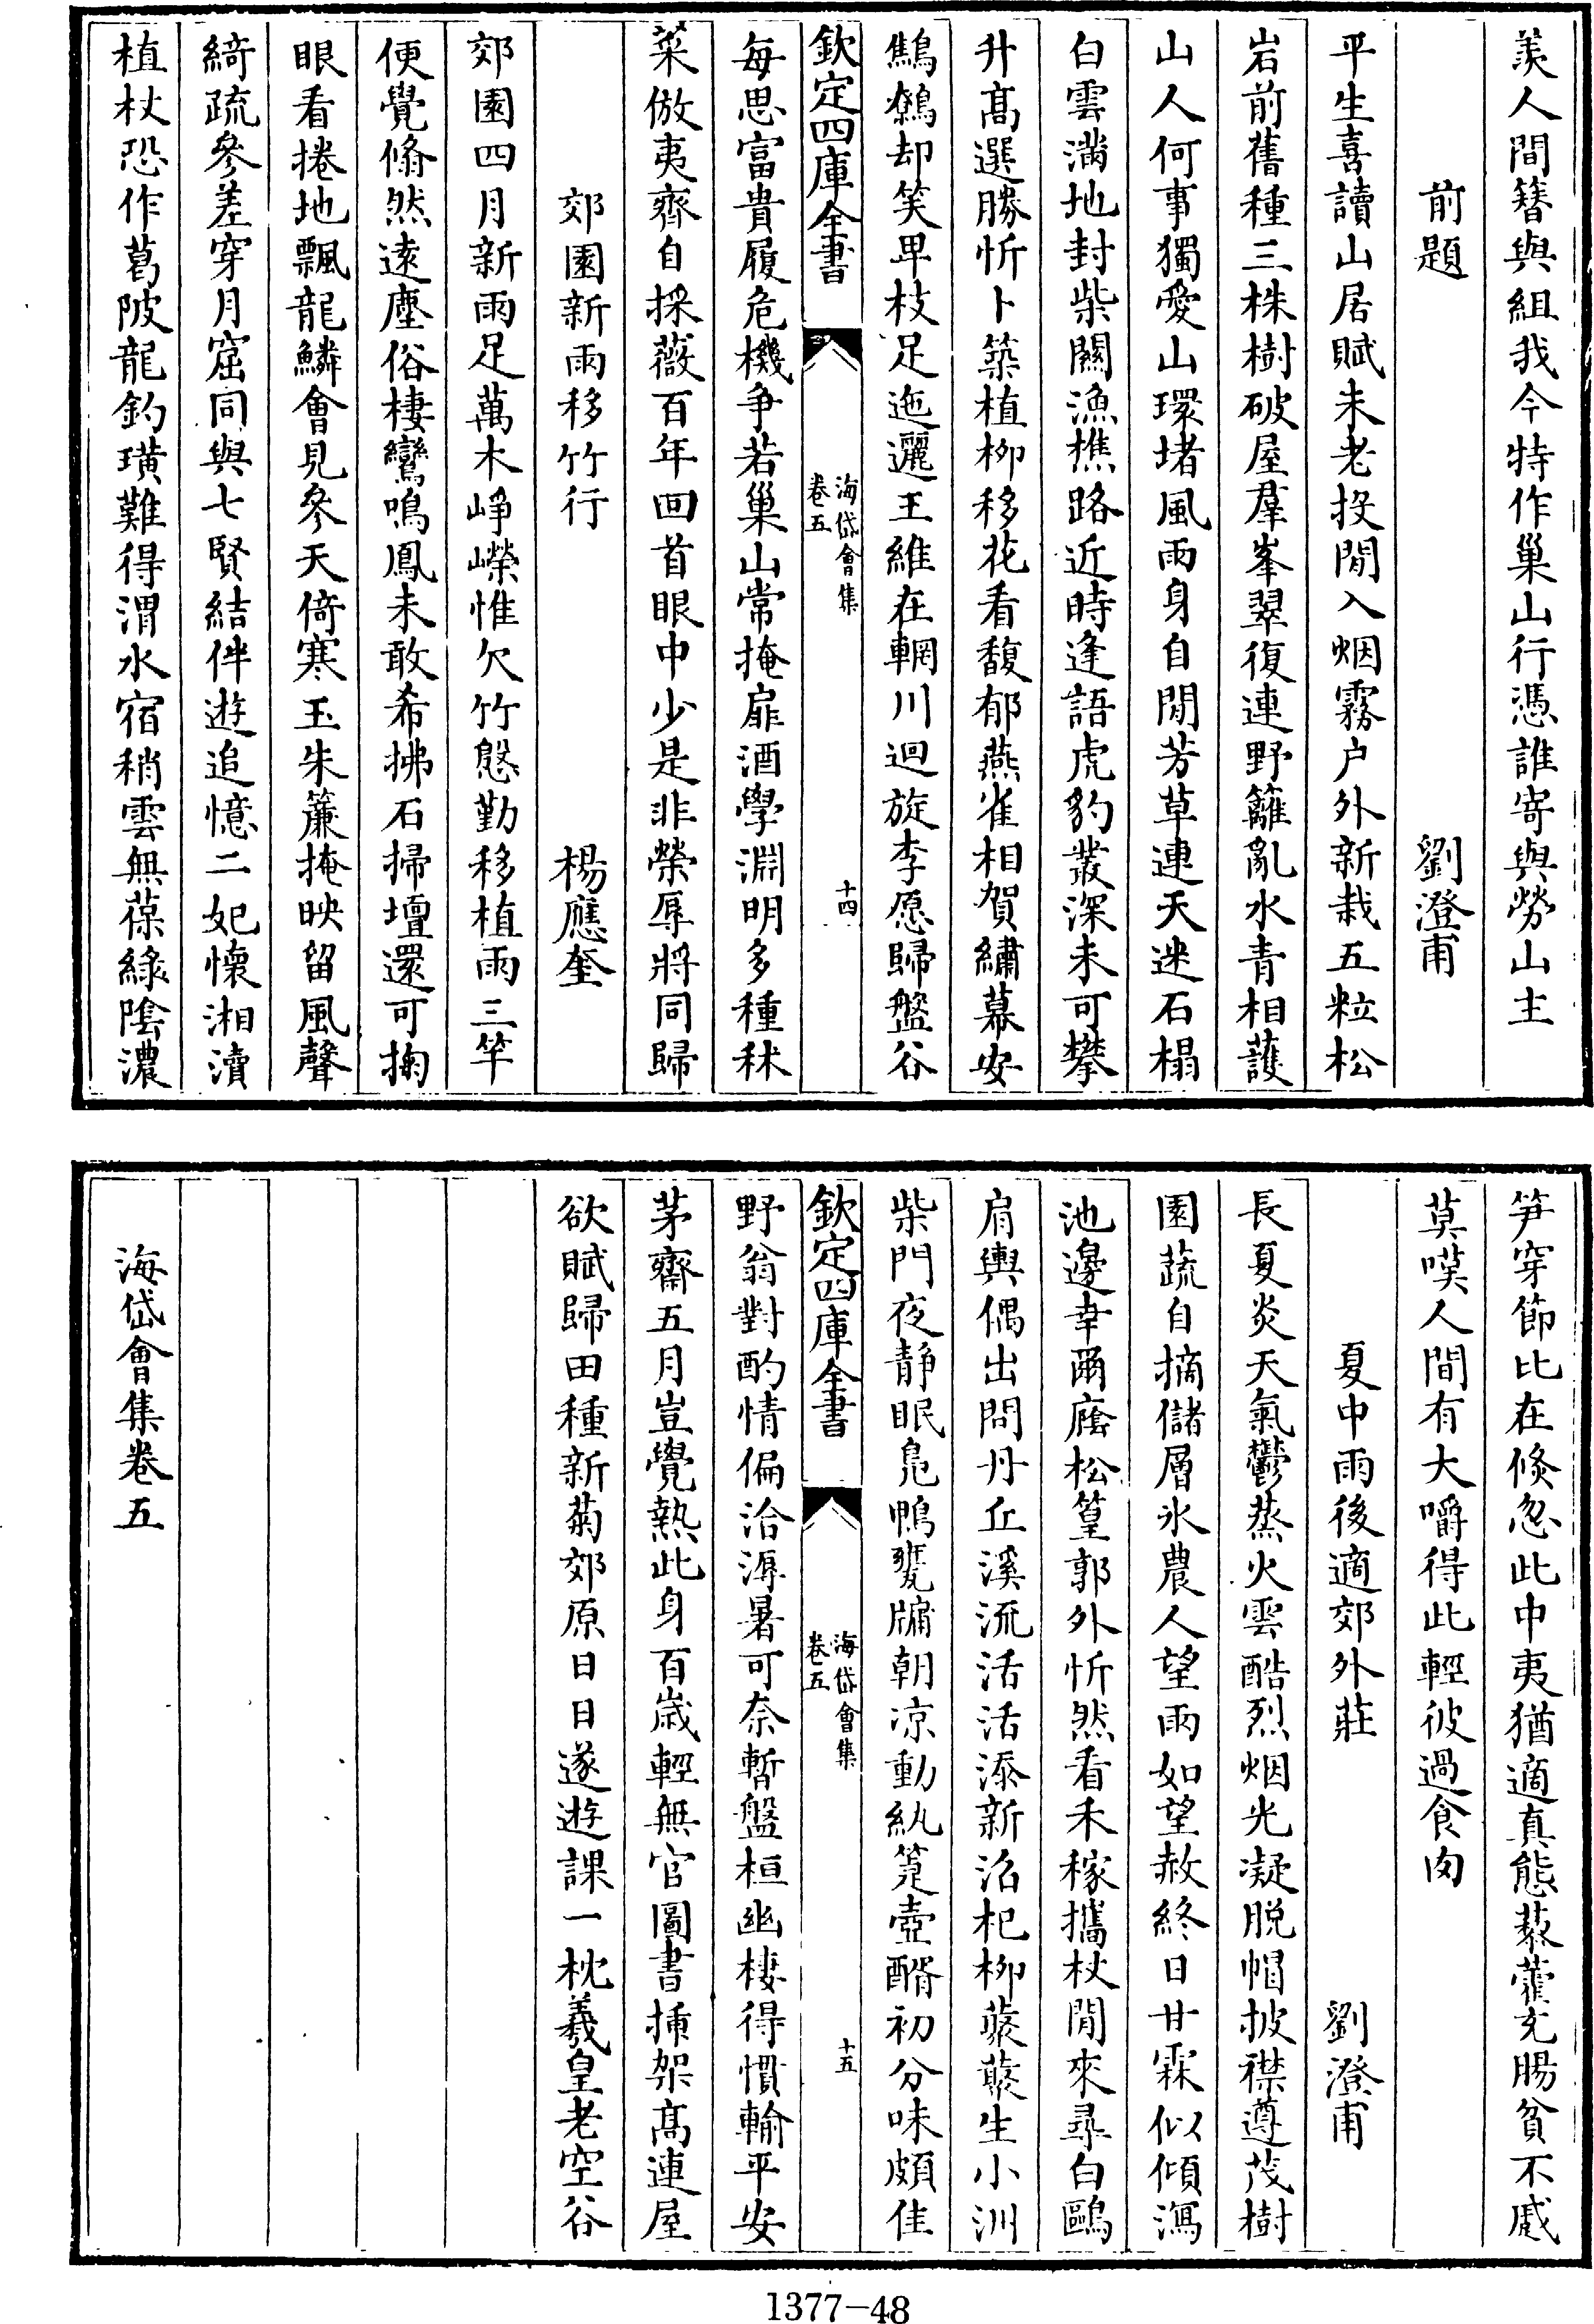 羨人間簪與組我今特作巢山行憑誰寄與勞山主
前題 劉澄甫
平生喜讀山居賦未老投閒入烟霧户外新栽五粒松
岩前舊種三株樹破屋羣峯翠復連野籬亂水青相護
山人何事獨愛山環堵風雨身自閒芳草連天迷石榻
白雲滿地封柴關漁樵路近時逢語虎豹叢深未可攀
升髙選勝忻卜築植柳移花看馥郁燕雀相賀繡幕安
鷦鷯却笑卑枝足迤邐王維在輞川迴旋李愿歸盤谷
欽定四庫全書
海岱會集
卷五
十四
每思富貴履危機争若巢山常掩扉酒學淵明多種秫
菜倣夷齊自採薇百年回首眼中少是非榮辱將同歸
郊園新雨移竹行 楊應奎
郊園四月新雨足萬木崢嶸惟欠竹慇勤移植雨三竿
便覺翛然逺塵俗棲鸞鳴鳳未敢希拂石掃壇還可掬
眼看捲地飄龍鱗會見參天倚寒玉朱簾掩映留風聲
綺疏參差穿月窟同與七賢結伴遊追憶二妃懷湘瀆
植杖恐作葛陂龍釣璜難得渭水宿稍雲無葆緑陰濃
笋穿節比在倐忽此中夷猶適真態藜藿充腸貧不慼
莫嘆人間有大嚼得此輕彼過食肉
夏中雨後適郊外莊 劉澄甫
長夏炎天氣鬱蒸火雲酷烈烟光凝脱帽披襟遵茂樹
園蔬自摘儲層氷農人望雨如望赦終日甘霖似傾瀉
池邊幸爾蔭松篁郭外忻然看禾稼攜杖閒來尋白鷗
肩輿偶出問丹丘溪流活活添新沼杞柳蘂蘂生小洲
柴門夜静眠凫鴨甕牖朝凉動紈箑壺醑初分味頗佳
欽定四庫全書
海岱會集
卷五
十五
野翁對酌情偏洽溽暑可奈暫盤桓幽棲得慣輸平安
茅齋五月豈覺熱此身百歳輕無官圖書揷架髙連屋
欲賦歸田種新菊郊原日日遂遊課一枕羲皇老空谷
海岱會集卷五
1377-48